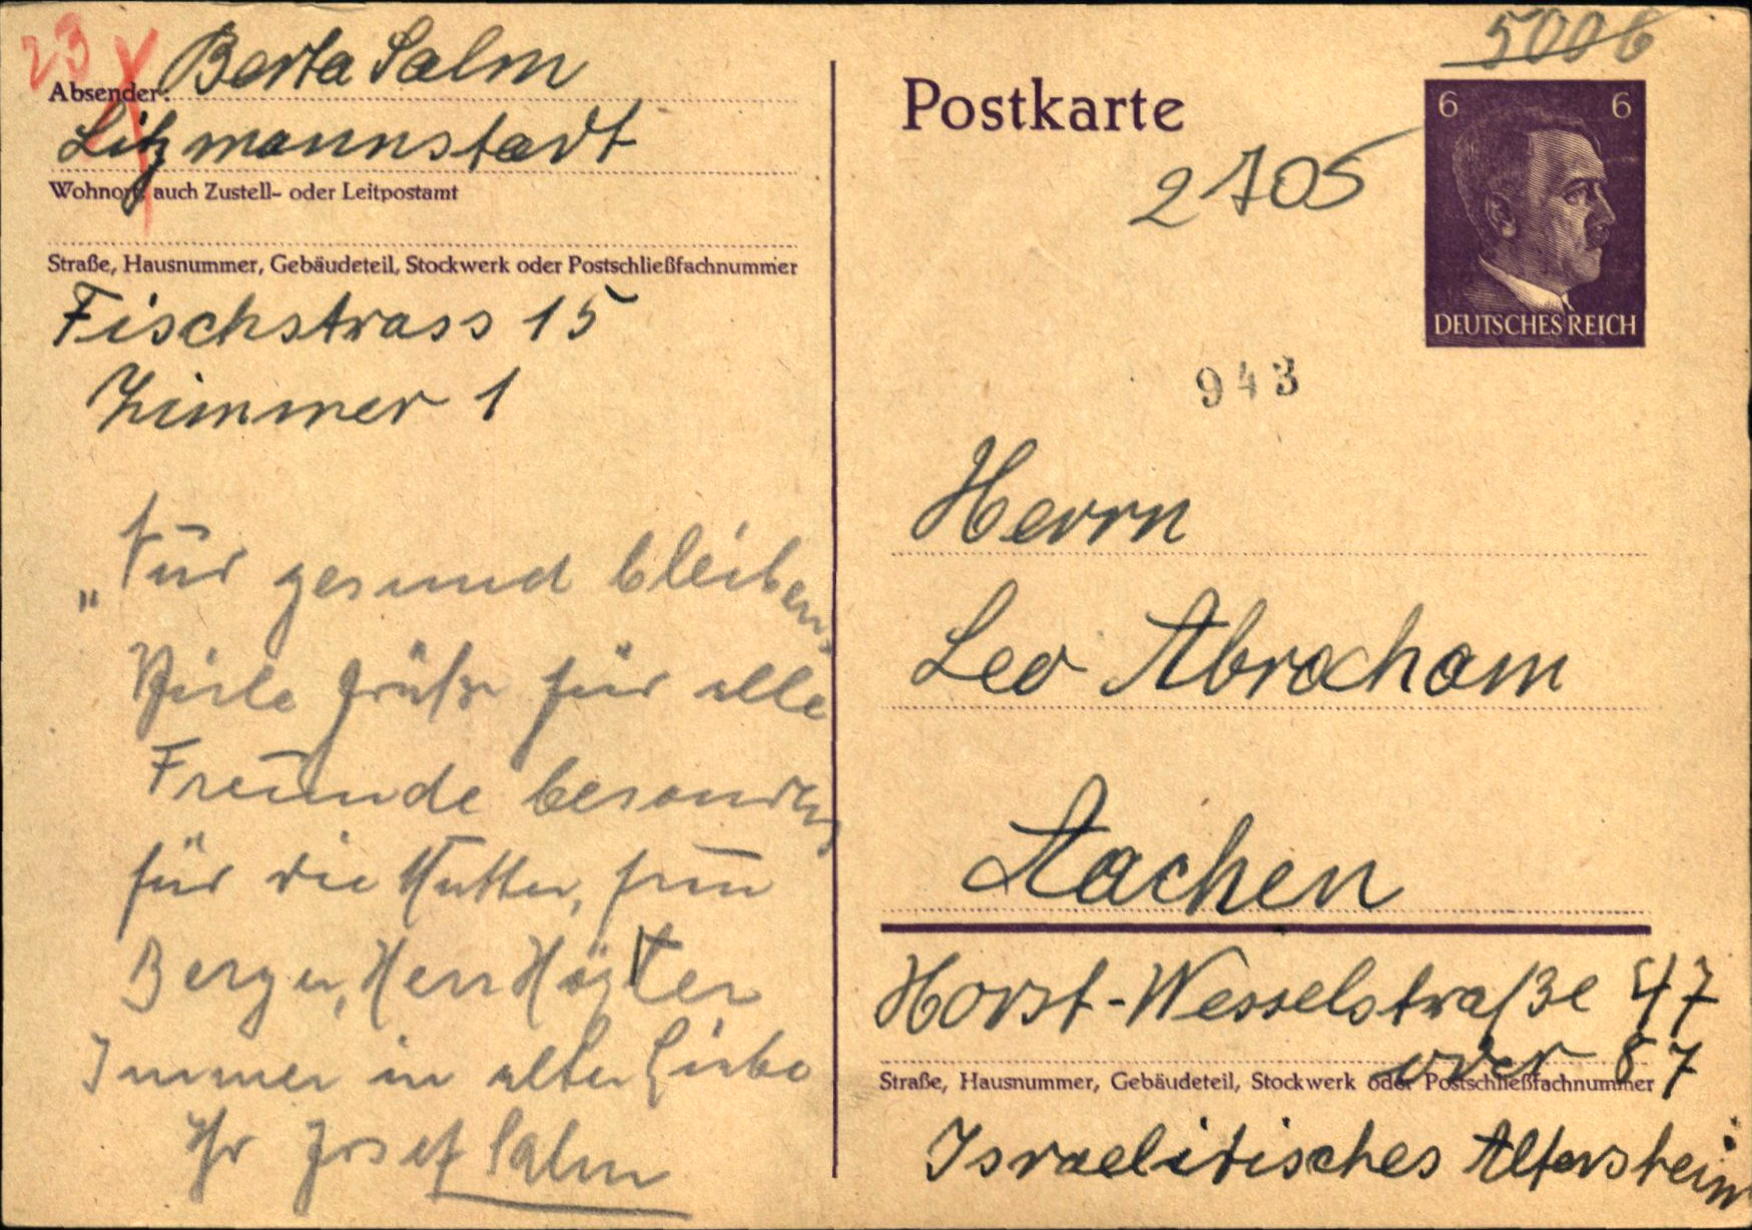 23
Absender: Berta Salm
Litzmannstadt
Wohnort, auch Zustell- oder Leitpostamt
Straße, Hausnummer, Gebäudeteil, Stockwerk oder Postschließfachnummer
Fischstrass 15
Zimmer 1
„Nur gesund bleiben„
Viele Grüße für alle
Freunde besonders
für die Mutter, Frau
Berger, Herr
Immer in alter Liebe
Ihr Josef Salm
5006
Postkarte
2705
6 6
DEUTSCHES REICH
943
Herrn
Leo Abraham
Aachen
Horst-Wesselstraße 47
oder 87
Straße, Hausnummer, Gebäudeteil, Stockwerk oder Postschließfachnummer
Israelitisches Altersheim